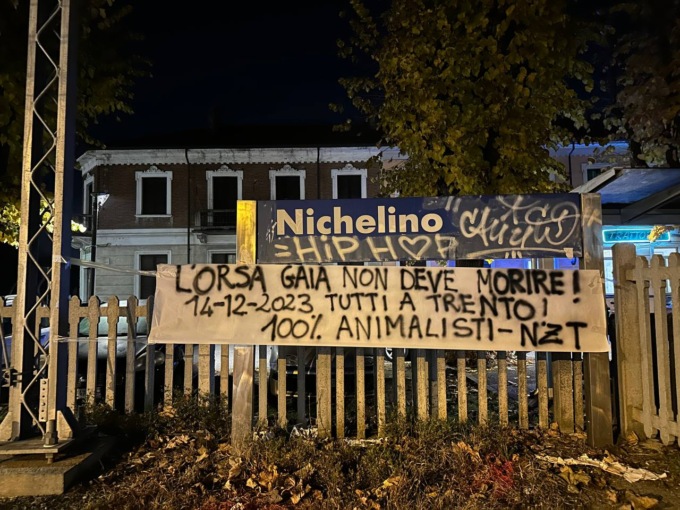 Nichelino
=HIPHOP
L'ORSA GAIA NON DEVE MORIRE!
14-12-2023 TUTTI A TRENTO!
100% ANIMALISTI-NZT